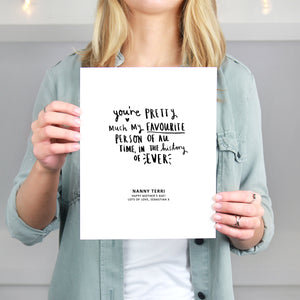 you're PRETTY
MUCH MY FAVOURITE
PERSON OF ALL
TIME, IN THE history
OF EVER
NANNY TERRI
HAPPY MOTHER'S DAY!
LOTS OF LOVE, SEBASTIAN X